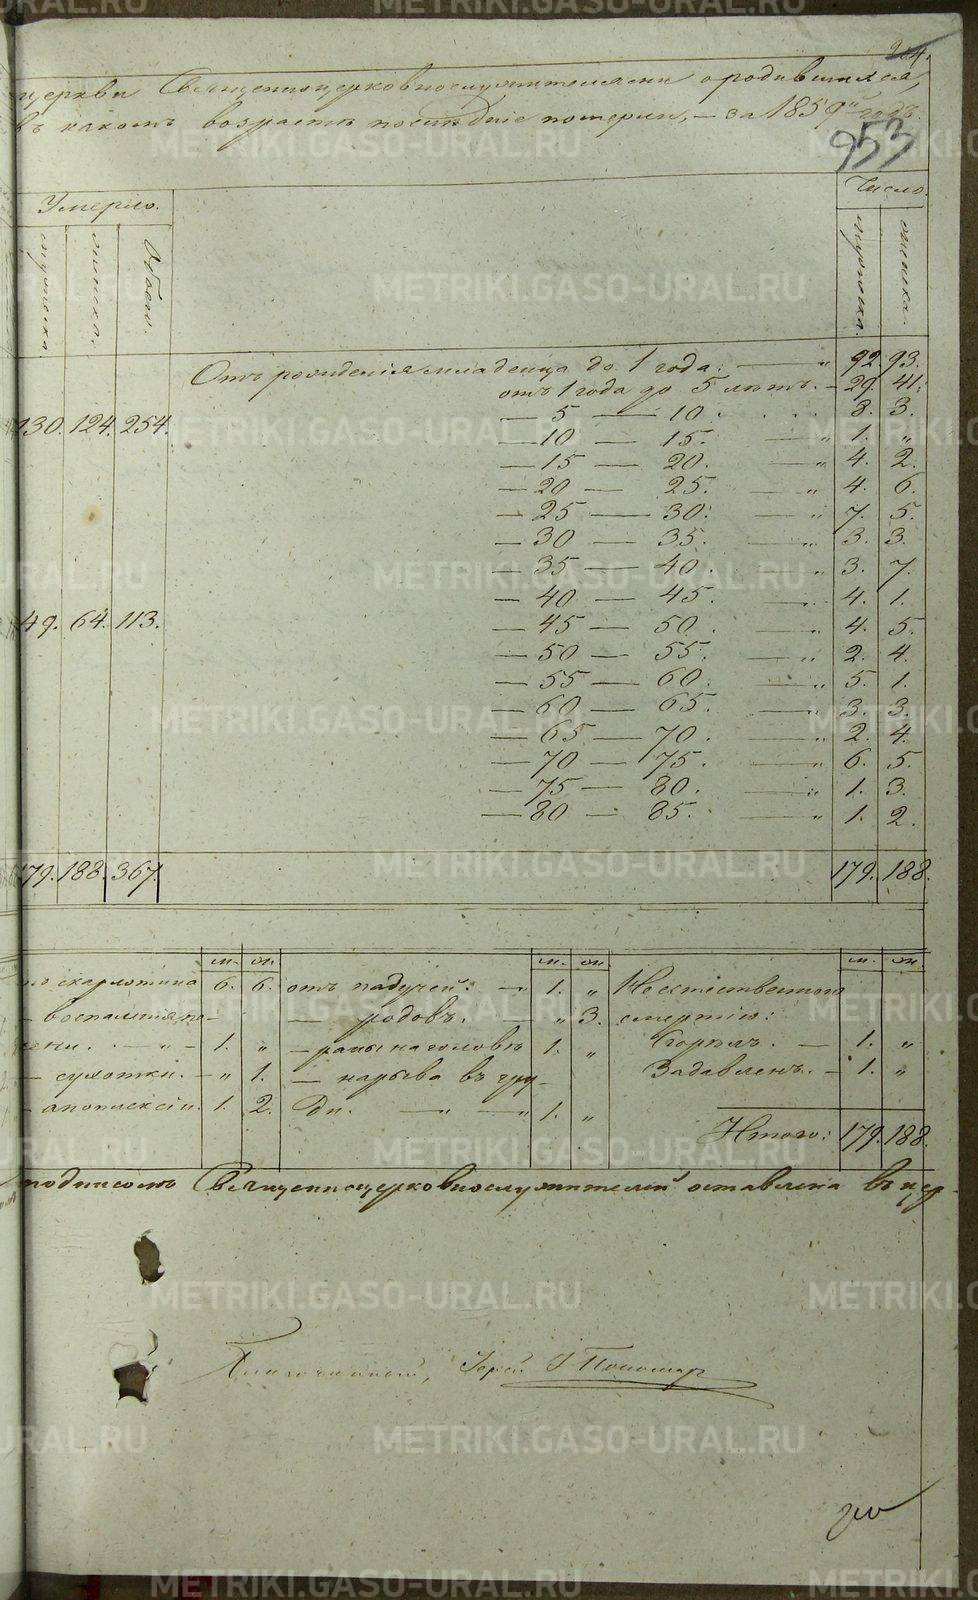 204.
церкви Священноцерковнослужителями о родившихся,
въ какомъ возрастѣ последніе померли, — за 1859й годъ.
953
Умерло.
Число.
мужеска.
женска.
Обоего.
мужеска.
женска.
Отъ рожденія младенца до 1 года. — " 92. 93.
отъ 1 года до 5 лѣтъ. — 29. 41.
— 5 — 10. . . . 8. 3.
130. 124. 254.
— 10 — 15. — " 1. "
— 15 — 20. — " 4. 2.
— 20 — 25. — " 4. 6.
— 25 — 30. — " 7. 5.
— 30 — 35. — " 3. 3.
— 35 — 40. — " 3. 7.
— 40 — 45. — " 4. 1.
49. 64. 113.
— 45 — 50. — " 4. 5.
— 50 — 55. — " 2. 4.
— 55 — 60. — " 5. 1.
— 60 — 65. — " 3. 3.
— 65 — 70. — " 2. 4.
— 70 — 75. — " 6. 5.
— 75 — 80. — " 1. 3.
— 80 — 85. — " 1. 2.
179. 188. 367.
179. 188.
м. ж. м. ж. м. ж.
скарлотина 6. 6. отъ падучей. — 1. " Неестественною
— воспаленія пе- — родовъ. — " 3. смертію:
чени. . — " — 1. " — раны на головѣ 1. " Сгорѣлъ. — 1. "
— сухотки. — " 1. — нарыва въ гру- Задавленъ. — 1. "
— апоплексіи. 1. 2. ди. — " — " 1. "
Итого: 179. 188.
подписомъ Священноцерковнослужителей оставлена въ цер-
Благочинный, Іерей І Пономар
METRIKI.GASO-URAL.RU